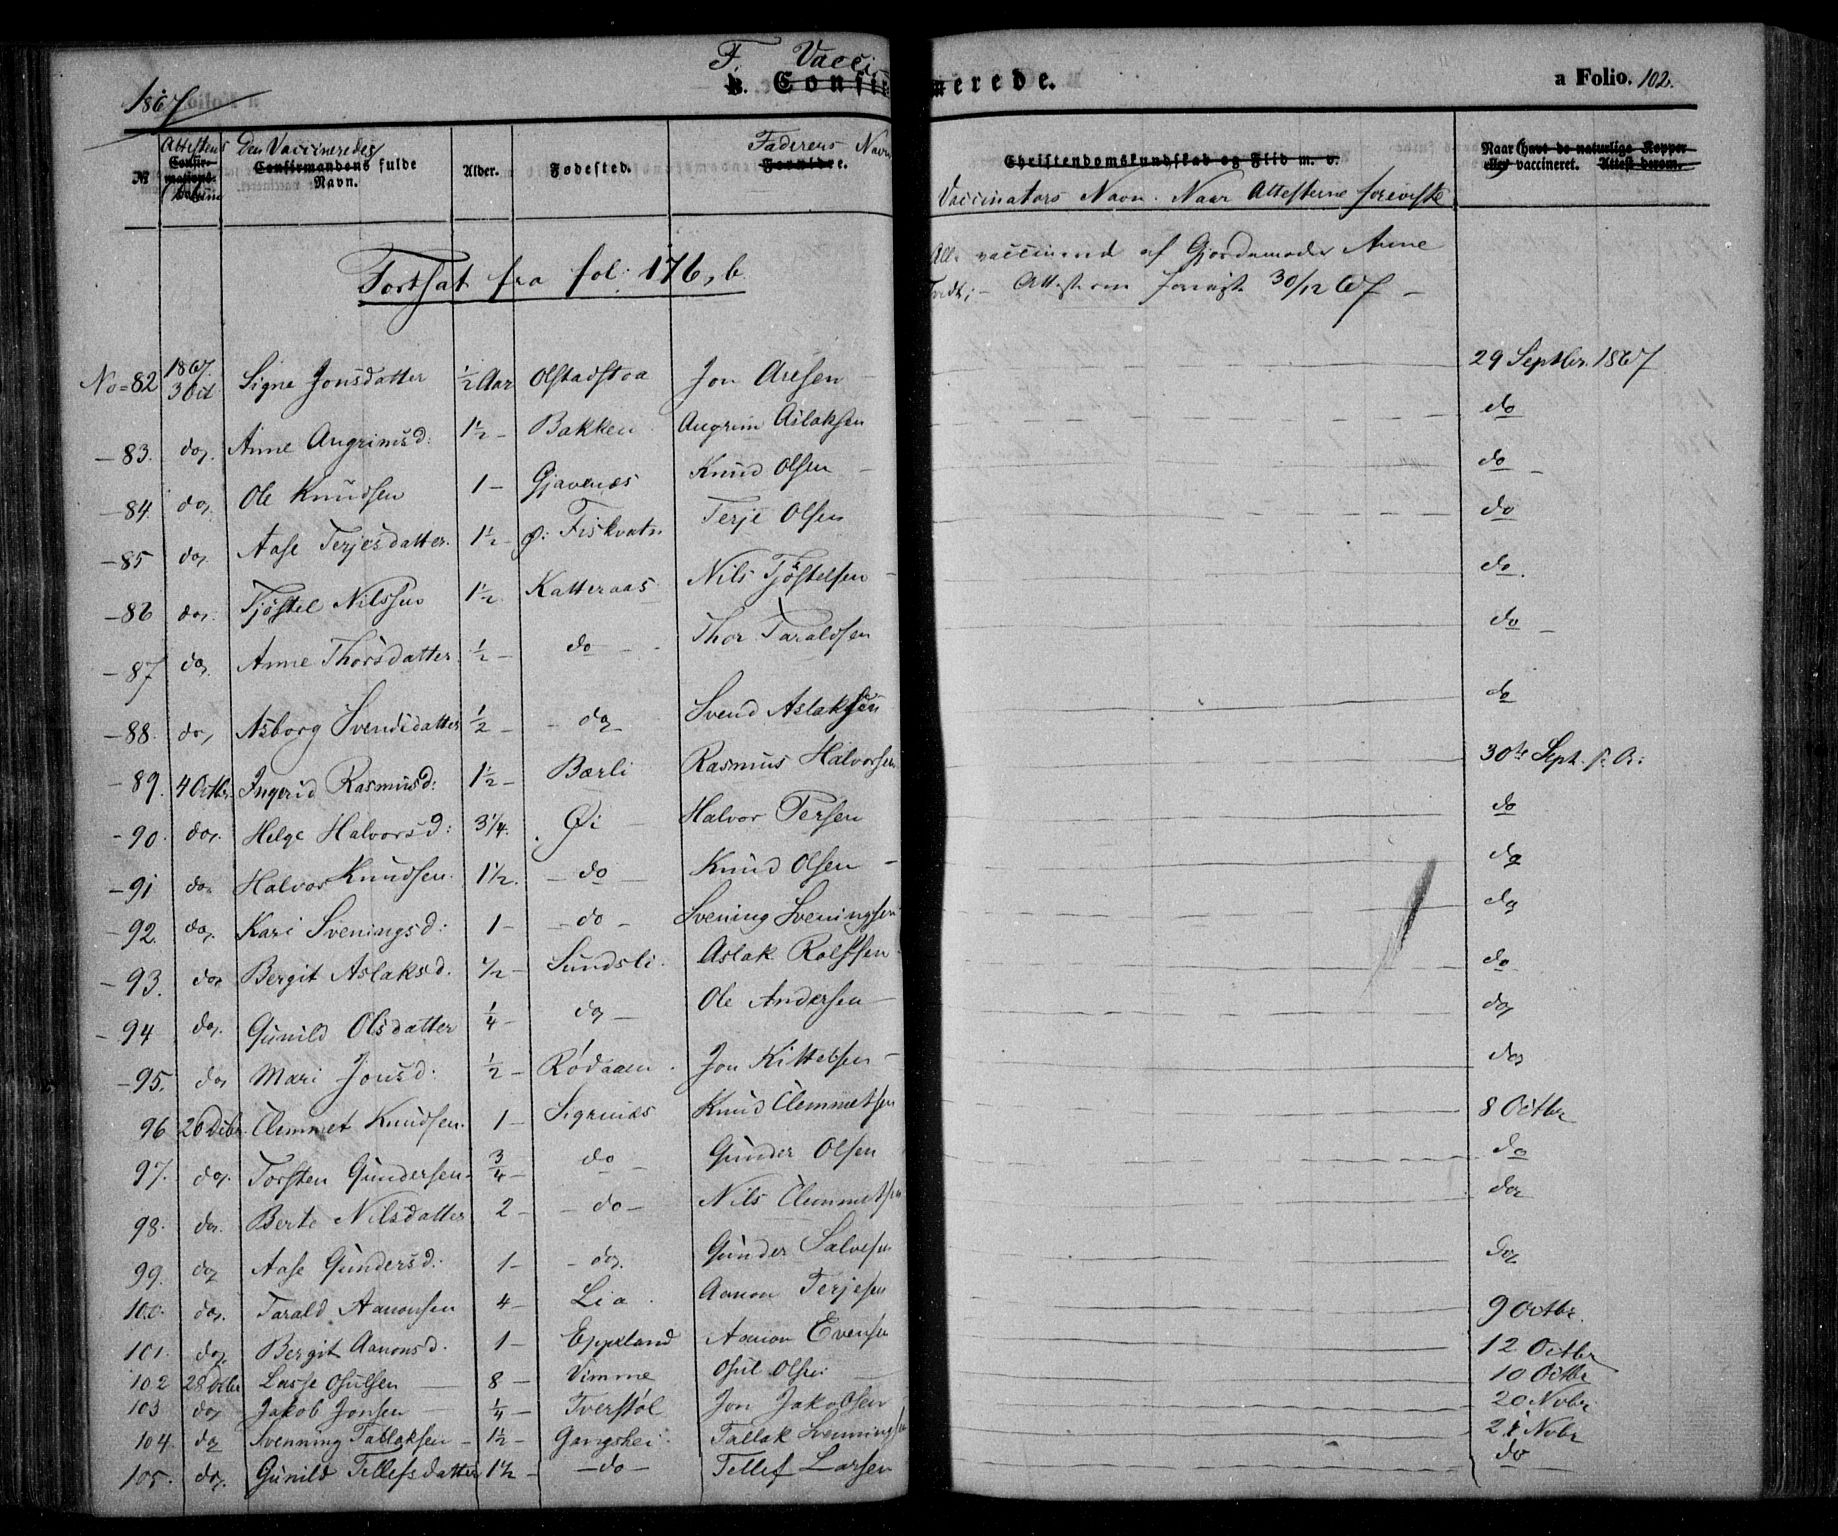 1867
F. Vacci
b. Confirmerede.
a Folio. 102.
№ Attestens Confirmations Datum Den Vaccineredes Confirmandens fulde Navn. Alder. Fødested. Faderens Navn Forældre. Christendomskundskab og Flid m. v. Vaccinators Navn. Naar Attesterne foreviste Naar (havt de naturlige Kopper eller) vaccineret. Attest derom.
Fortsat fra fol: 176, b.
Alle vaccinered af Gjordemoder Anne
Tvedt; - Attesterne forevist 30/12 67 -
No = 82 1867. 3 Oct Signe Jonsdatter ½ Aar Olstadstoa Jon Aresen 29 Septbr. 1867
- 83. do. Anne Augrimsd: 1½ - Bakken Augrim Aslaksen do
- 84. do. Ole Knudsen 1 - Gjavenæs Knud Olsen - do -
- 85 do. Aase Terjesdatter. 1½ - Ø: Fiskvatn Terje Olsen do
- 86 do. Tjöstel Nilssen 1½. Katteraas Nils Tjöstelsen - do.
- 87 do. Anne Thorsdatter ½ - do - Thor Taraldsen do -
- 88. do. Asborg Svendsdatter ½ - - do Svend Aslaksen do
- 89. 4 Octbr. Ingerid Rasmusd: 1½ - Bærli Rasmus Halvorsen 30te Sept. s: A:
- 90. do. Helge Halvorsd: 3¼. Øi - Halvor Tersen do
- 91 do. Halvor Knudsen. 1½. - do - Knud Olsen - do
- 92. do. Kari Sveningsd: 1 - - do - Svening Sveningsen do
- 93. do. Bergit Aslaksd. ½ - Sundsli. Aslak Rolfsen do
- 94 do. Gunild Olsdatter ¼ - do - Ole Andersen - do
- 95. do Mari Jonsd: ½ - Rödaaen. Jon Kittelsen - do
96 26 Dcbr. Clemmet Knudsen. 1 - Sigrinæs Knud Clemmetsen 8 Octbr
97. do. Torsten Gundersen ¾ - do - Gunder Olsen do
98. do. Berte Nilsdatter 2 - - do - Nils Clemmetsen do
99. do Aase Gundersd. 1 - - do. Gunder Salvesen do
100. do. Tarald Aanonsen 4 - Lia. Aanon Terjesen 9 Octbr.
101. do Bergit Aanonsd. 1 - Eppeland Aanon Evensen 12 Octbr
102 28 Dcbr Lasse Osulsen - 8 - Vimme Osul Olsen 10 Octbr
103 do Jakob Jonsen - ¼ - Tverstöl Jon Jakobsen 20 Novbr
104. do Svenning Tallaksen - 1½ - Gangshei. Tallak Svenningsen 21 Novbr
105. do. Gunild Tellefsdatter 1½ - - do - Tellef Larsen do